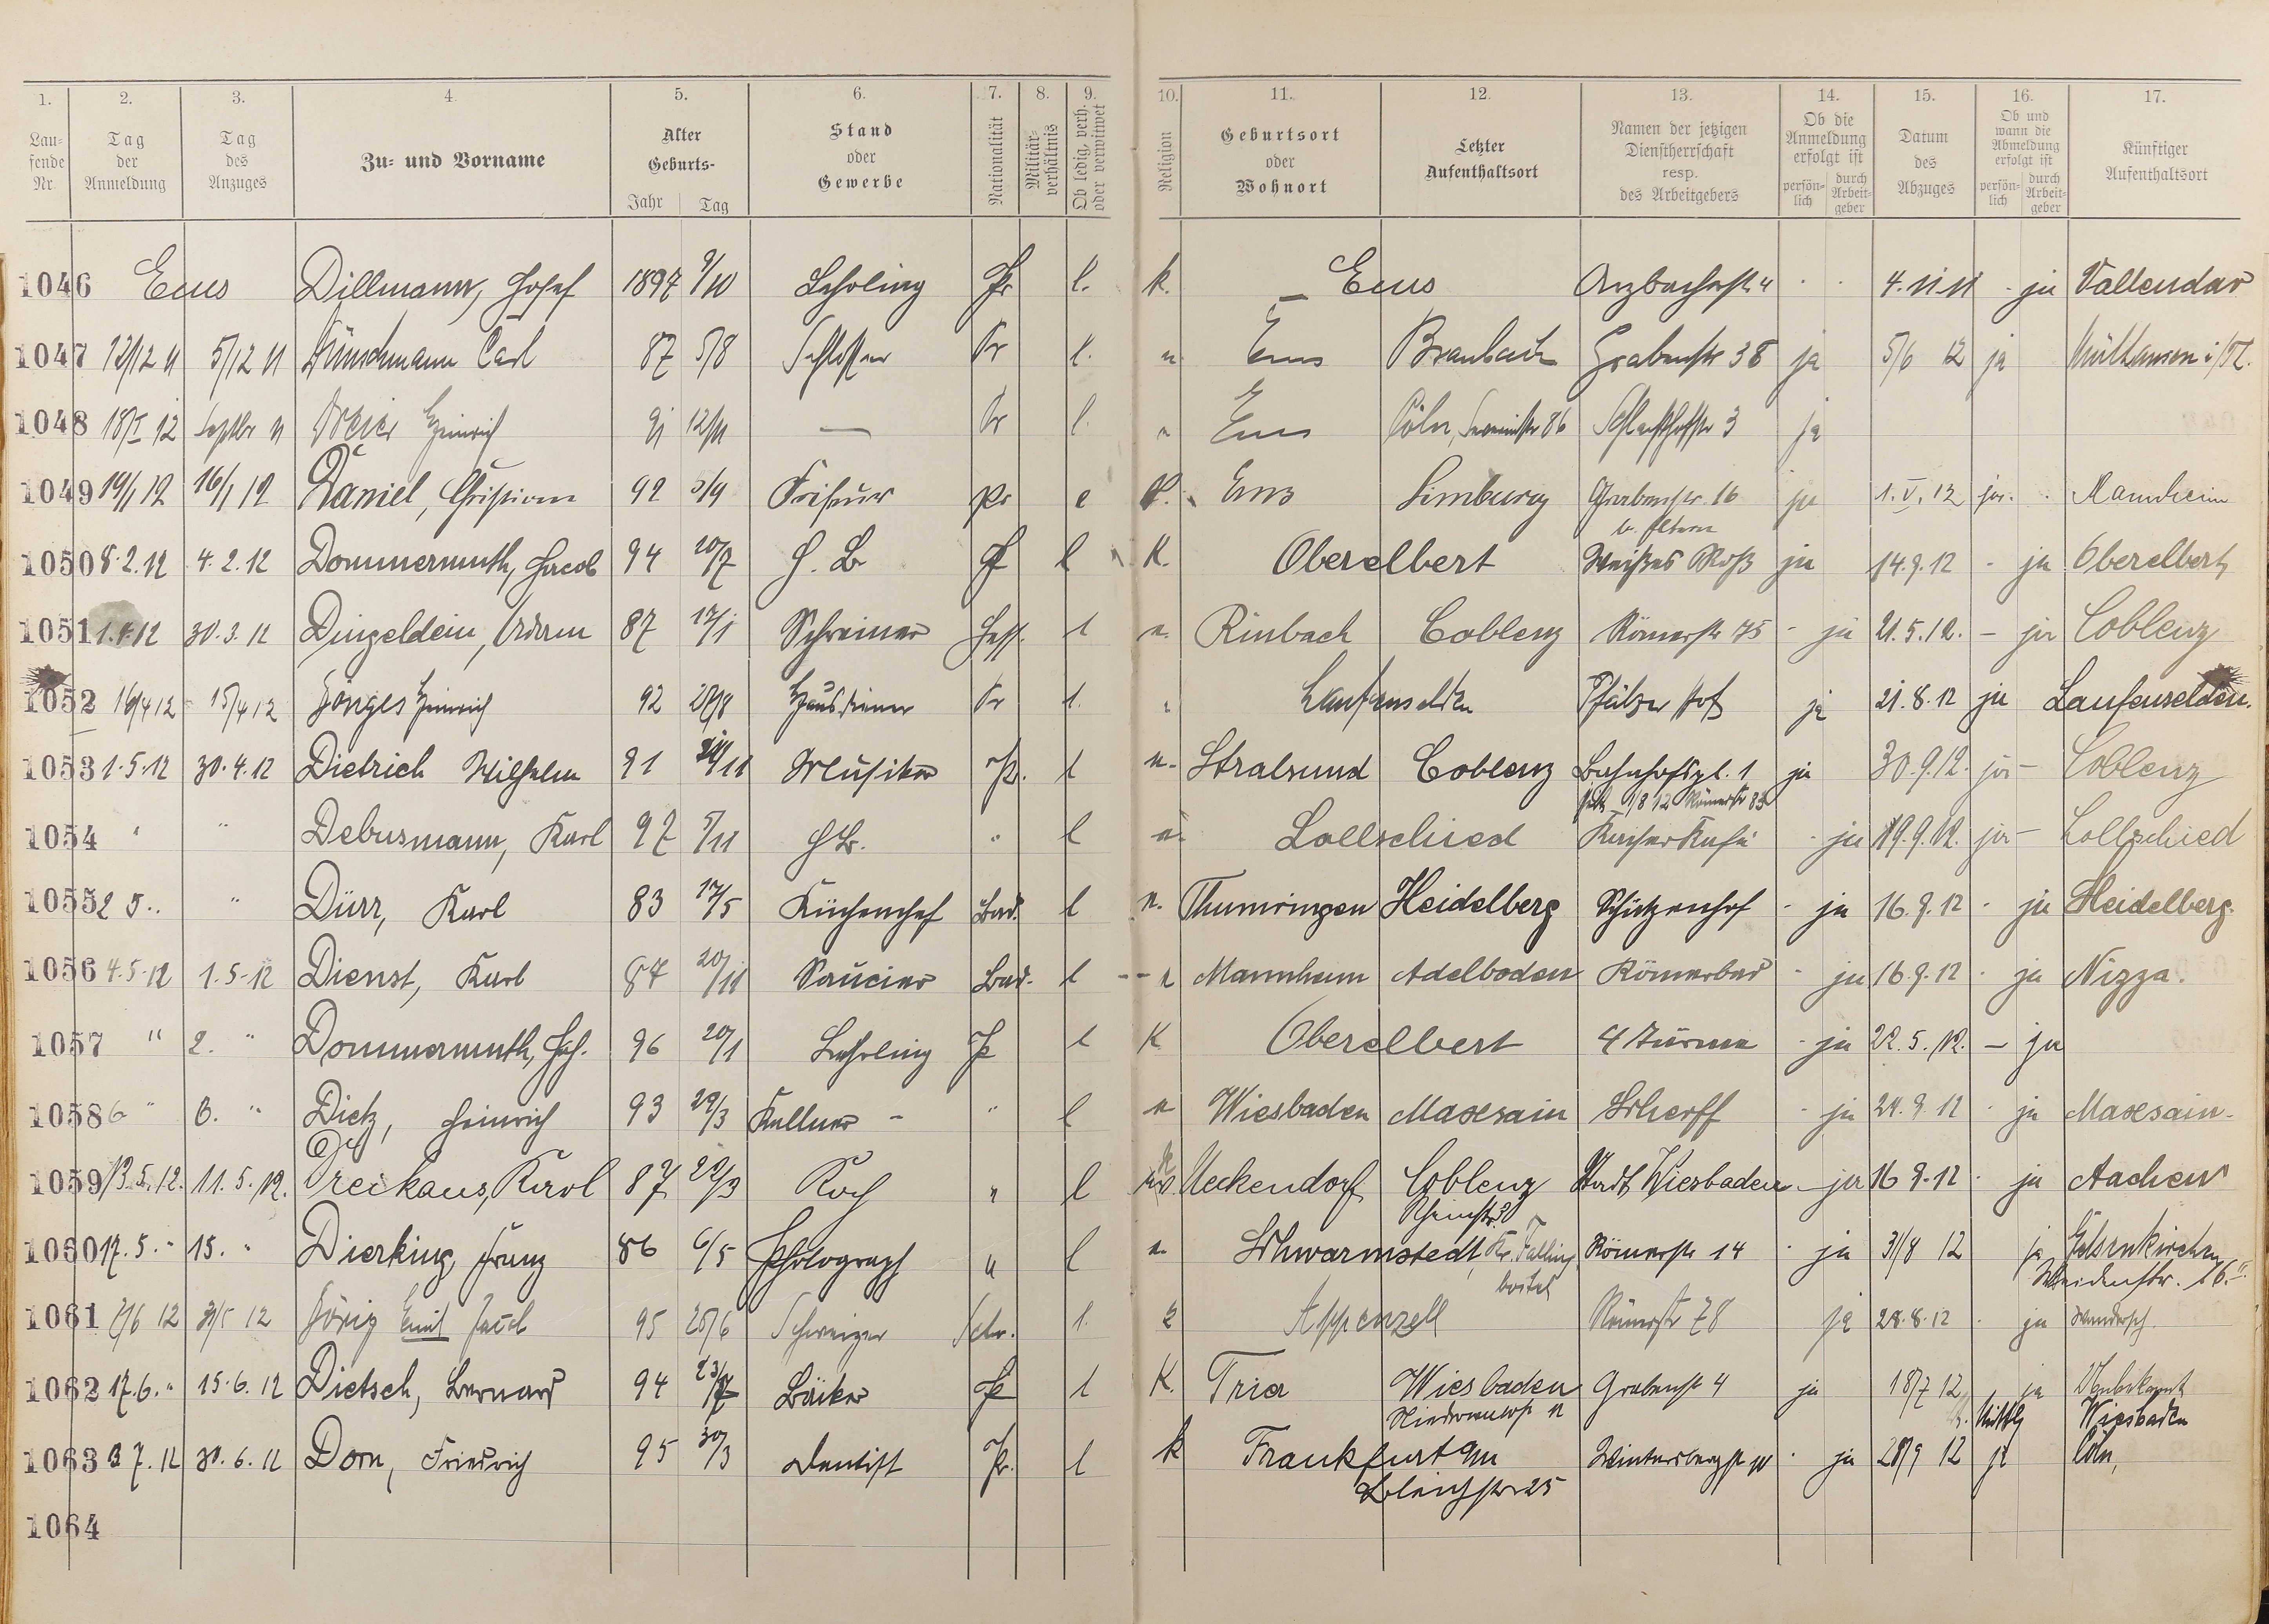 1. 2. 3. 4. 5. 6. 7. 8. 9. 10. 11. 12. 13. 14. 15. 16. 17.
Lau-fende Nr. Tag der Anmeldung Tag des Anzuges Zu- und Vorname Alter Geburts- Jahr Tag Stand oder Gewerbe Nationalität Militär-verhältnis Ob ledig, verh. oder verwitwet Religion Geburtsort oder Wohnort Letzter Aufenthaltsort Namen der jetzigen Dienstherrschaft resp. des Arbeitgebers Ob die Anmeldung erfolgt ist persön-lich durch Arbeit-geber Datum des Abzuges Ob und wann die Abmeldung erfolgt ist persön-lich durch Arbeit-geber Künftiger Aufenthaltsort
1046 Ems Dillmann, Josef 1897 9/10 Lehrling Pr l. k. Ems Arzbacherstr 4 4.11.11 - ja Vallendar
1047 12/12 11 5/12 11 Carl 87 5/8 Schlosser Pr l. Ems Braubach Grabenstr 38 ja 5/6 12 ja Mülhausen i/
1048 18/I 12 Septbr 11 Heinrich 91 12/11 — Pr l. Ems Cöln, 86 Schlachthofstr 3 ja
1049 19/1 12 16/1 12 Daniel, Christian 92 5/9 Friseur Pr l Ems Limburg Grabenstr. 16 ja 1. V. 12 ja. Mannheim
b. Eltern
1050 8.2.12 4.2.12 Dommermuth, Jacob 94 20/7 H. B. Pr l K. Oberelbert Weißes Roß ja 14.9.12 - ja Oberelbert
1051 1.4.12 30.3.12 Dingeldein, Adam 87 17/1 Schreiner Hess. l Rinbach Coblenz Römerstr 75 - ja 21.5.12. - ja Coblenz
1052 16/4 12 15/4 12 Dönges Heinrich 92 28/8 Hausdiener Pr l. Laufenselden Pfälzer Hof ja 21.8.12 ja Laufenselden.
1053 1.5.12 30.4.12 Dietrich Wilhelm 91 /11 Musiker Pr. l Stralsund Coblenz Bahnhofspl. 1 ja 30.9.12. ja - Coblenz
1/8 12 Römerstr 83
1054 " " Debusmann, Karl 97 5/11 HB. " l Lollschied - ja 19.9.12. ja - Lollschied
1055 2 5. . " Dürr, Karl 83 17/5 Küchenchef Bad. l Thumringen Heidelberg Schützenhof - ja 16.9.12 - ja Heidelberg.
1056 4.5.12 1.5.12 Dienst, Karl 87 20/11 Saucier Bad. l Mannheim Adelboden Römerbad - ja 16.9.12 - ja Nizza.
1057 " 2. " Dommermuth, Joh. 96 20/1 Lehrling Pr l K Oberelbert 4 Türme - ja 22.5.12. - ja
1058 6 " 6. " Dietz, Heinrich 93 29/3 Kellner - " l Wiesbaden Maxsain Scherff - ja 24.9.12 - ja Maxsain
1059 13.5.12. 11.5.12. Dreckaus, Karl 87 20/3 Koch " l Ueckendorf Coblenz Stadt Wiesbaden - ja 16.9.12 - ja Aachen
Rheinstr. 30
1060 17.5. " 15. " Dierking, Franz 86 6/5 Photograph " l Schwarmstedt, Kr. Falling Römerstr 14 - ja 31/8 12 ja Gelsenkirchen
bostel Weidenstr. 16. II
1061 7/6 12 31/5 12 Dörig Emil Jacob 95 25/6 Schweizer Schw. l. Appenzell Römerstr 78 ja 28.8.12 - ja Wandersch.
1062 17.6. " 15.6.12 Dietsch, Bernard 94 23/7 Bäcker Pr l K. Trier Wiesbaden Grabenstr 4 ja 18/7 12 ja Unbekannt
Wiesbaden
1063 3 7.12 30.6.12 Dorn, Friedrich 95 30/3 Dentist Pr. l k Frankfurt a/m Wintersbergstr 10 - ja 28/9 12 ja Cöln,
Bleichstr 25
1064